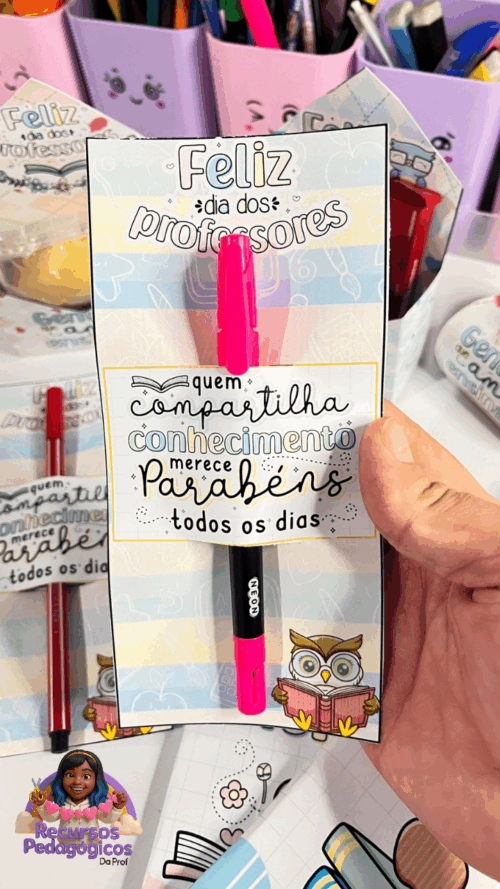 Feliz
dia dos
professores
quem
compartilha
conhecimento
merece
Parabéns
todos os dias
NEON
Feliz
dia dos
professores
Feliz
dia dos
quem
merece
todos os dia
Recursos
Pedagógicos
Da Prof